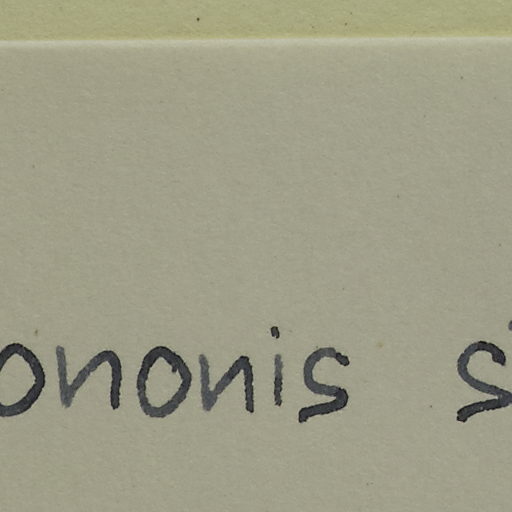 ononis s